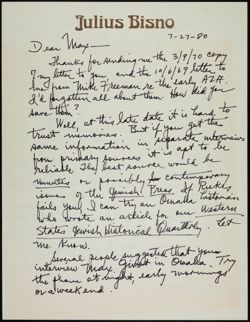 Julius Bisno
7-27-80
Dear Max —
Thanks for sending me the 3/9/70 copy
of my letter to you, and the 10/6/69 letter to
me from Mike Freeman re the early AZA.
I'd forgotten all about them. How did you
save them?
Well, at this late date it is hard to
trust memories. But if you get the
same information in separate interviews
from primary sources it is apt to be
reliable. The best source would be
minutes or possibly contemporary
issues of the Jewish Press. If
fails you, I can try an Omaha historian
who wrote an article for our Western
States Jewish Historical Quarterly. Let
me know.
Several people suggested that you
interview Max Givot in Omaha. Try
the phone at night, early mornings
or a weekend.